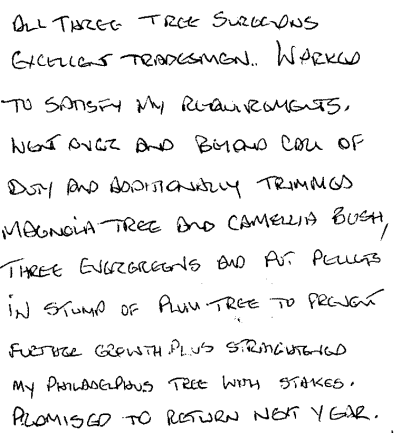 ALL THREE TREE SURGEONS
EXCELLENT TRADESMEN.. WORKED
TO SATISFY MY REQUIREMENTS.
WENT OVER AND BEYOND CALL OF
DUTY AND ADDITIONALLY TRIMMED
MAGNOLIA TREE AND CAMELLIA BUSH,
THREE EVERGREENS AND PUT PELLETS
IN STUMP OF PLUM TREE TO PREVENT
FURTHER GROWTH PLUS STRAIGHTENED
MY PHILADELPHUS TREE WITH STAKES.
PROMISED TO RETURN NEXT YEAR.